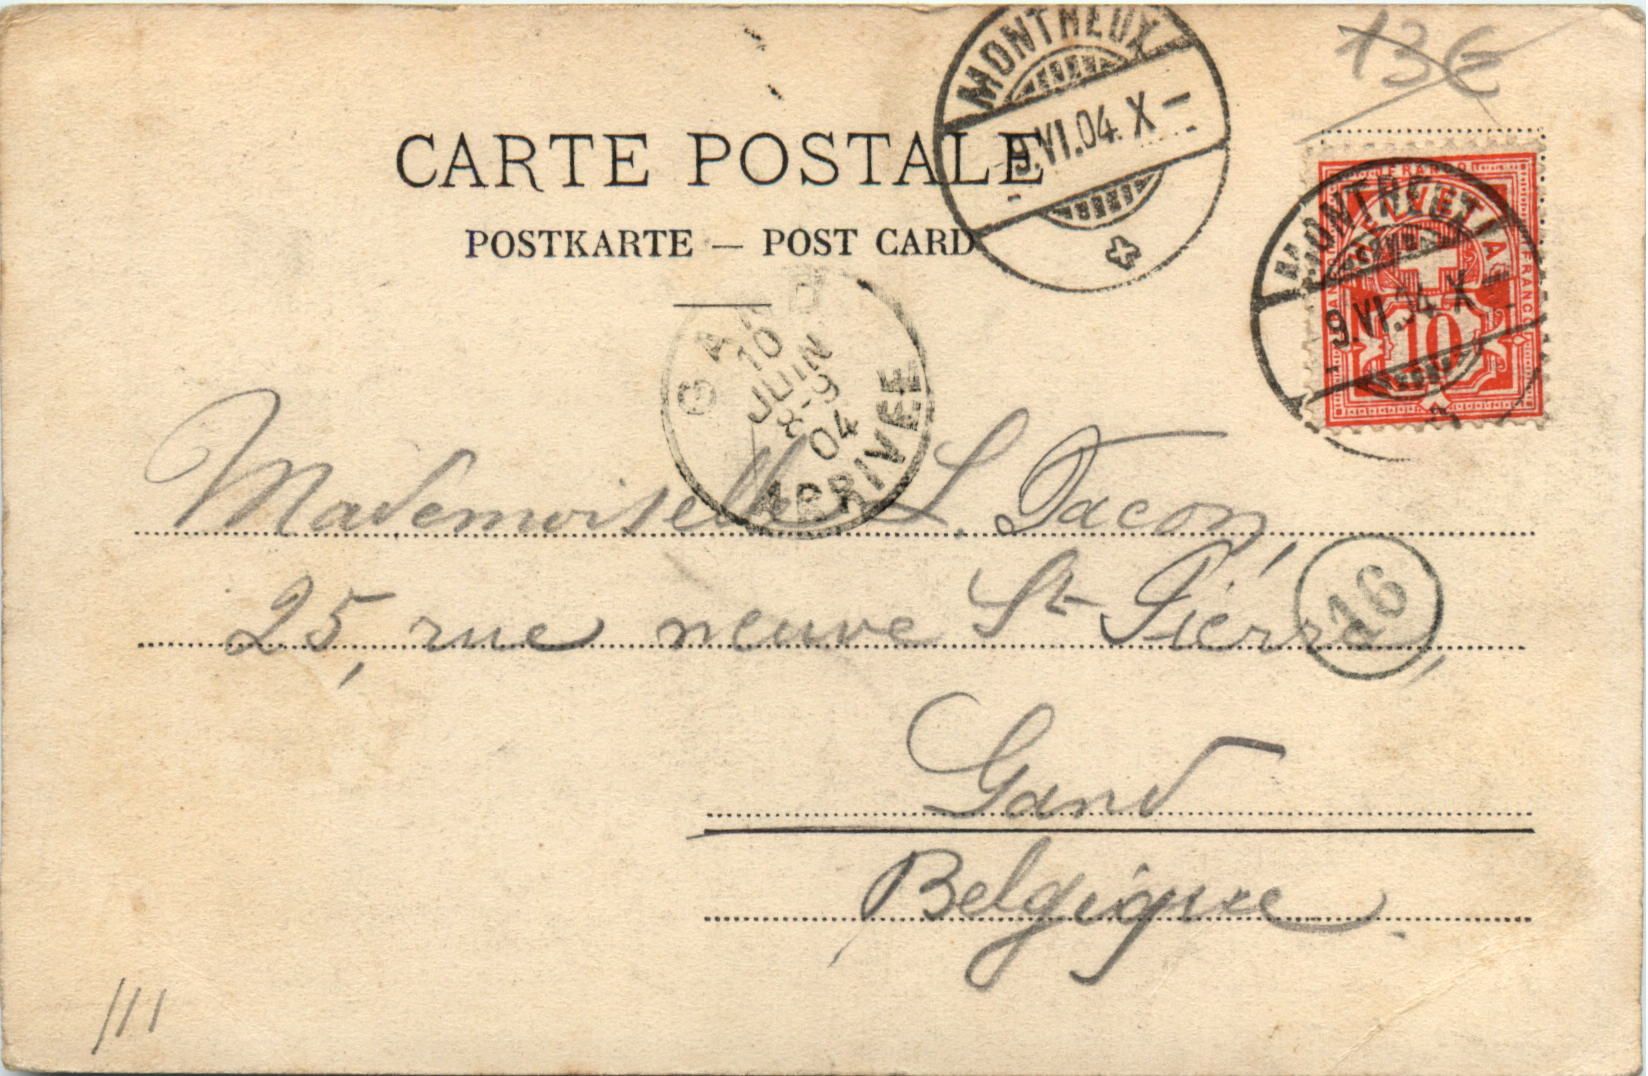 13€
MONTREUX
9.VI.04.X-
CARTE POSTALE
POSTKARTE — POST CARD
FRANCO
MONTREUX
9.VI.04 X-
10
GAND
10
JUIN
8-9
04
ARRIVEE
Mademoiselle L. Tacon,
25, rue neuve St Pierre,
16
Gand
Belgique.
111